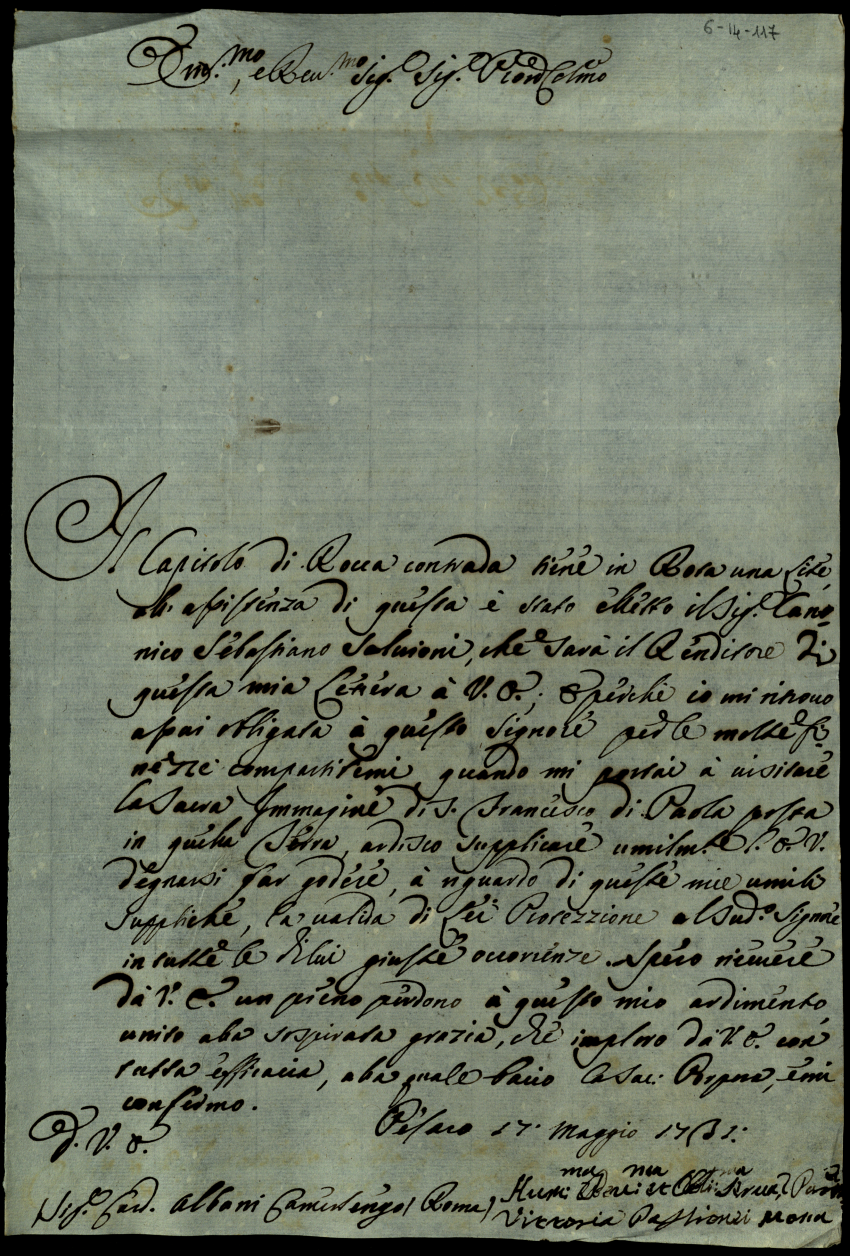 6-14-117
Em.mo, e Reu.mo Sig.e Sig.e Pron Colmo
Il Capitolo di Rocca contrada tiene in Rota una Lite,
all'assistenza di questa è stato eletto il Sig.e Cano=
nico Sebastiano Saluioni, che sarà il Renditore di
questa mia Lettera à V. E.; e perche io mi ritrouo
assai obligata à questo Signore per le molte fi=
nezze compartitemi, quando mi portai à uisitare
la Sacra Immagine di S. Francesco di Paola posta
in quella Terra, ardisco supplicare umilmte l'E. V.
degnarsi far godere, à riguardo di queste mie umili
suppliche, la ualida di Lei Protezzione al Sud.o Signore
in tutte le di lui giuste occorrenze. Spero riceuere
da V. E. un pieno perdono à questo mio ardimento
unito alla sospirata grazia, che imploro da V. E. con
tutta efficacia, alla quale bacio la Sac: Porpora, e mi
confermo.
D. V. E.
Pesaro 17: Maggio 1731:
Sig.e Card. Albani Camerlengo (Roma)
Hum:ma Deu:ma et Obli:ma Serua,
Vittoria Passionei